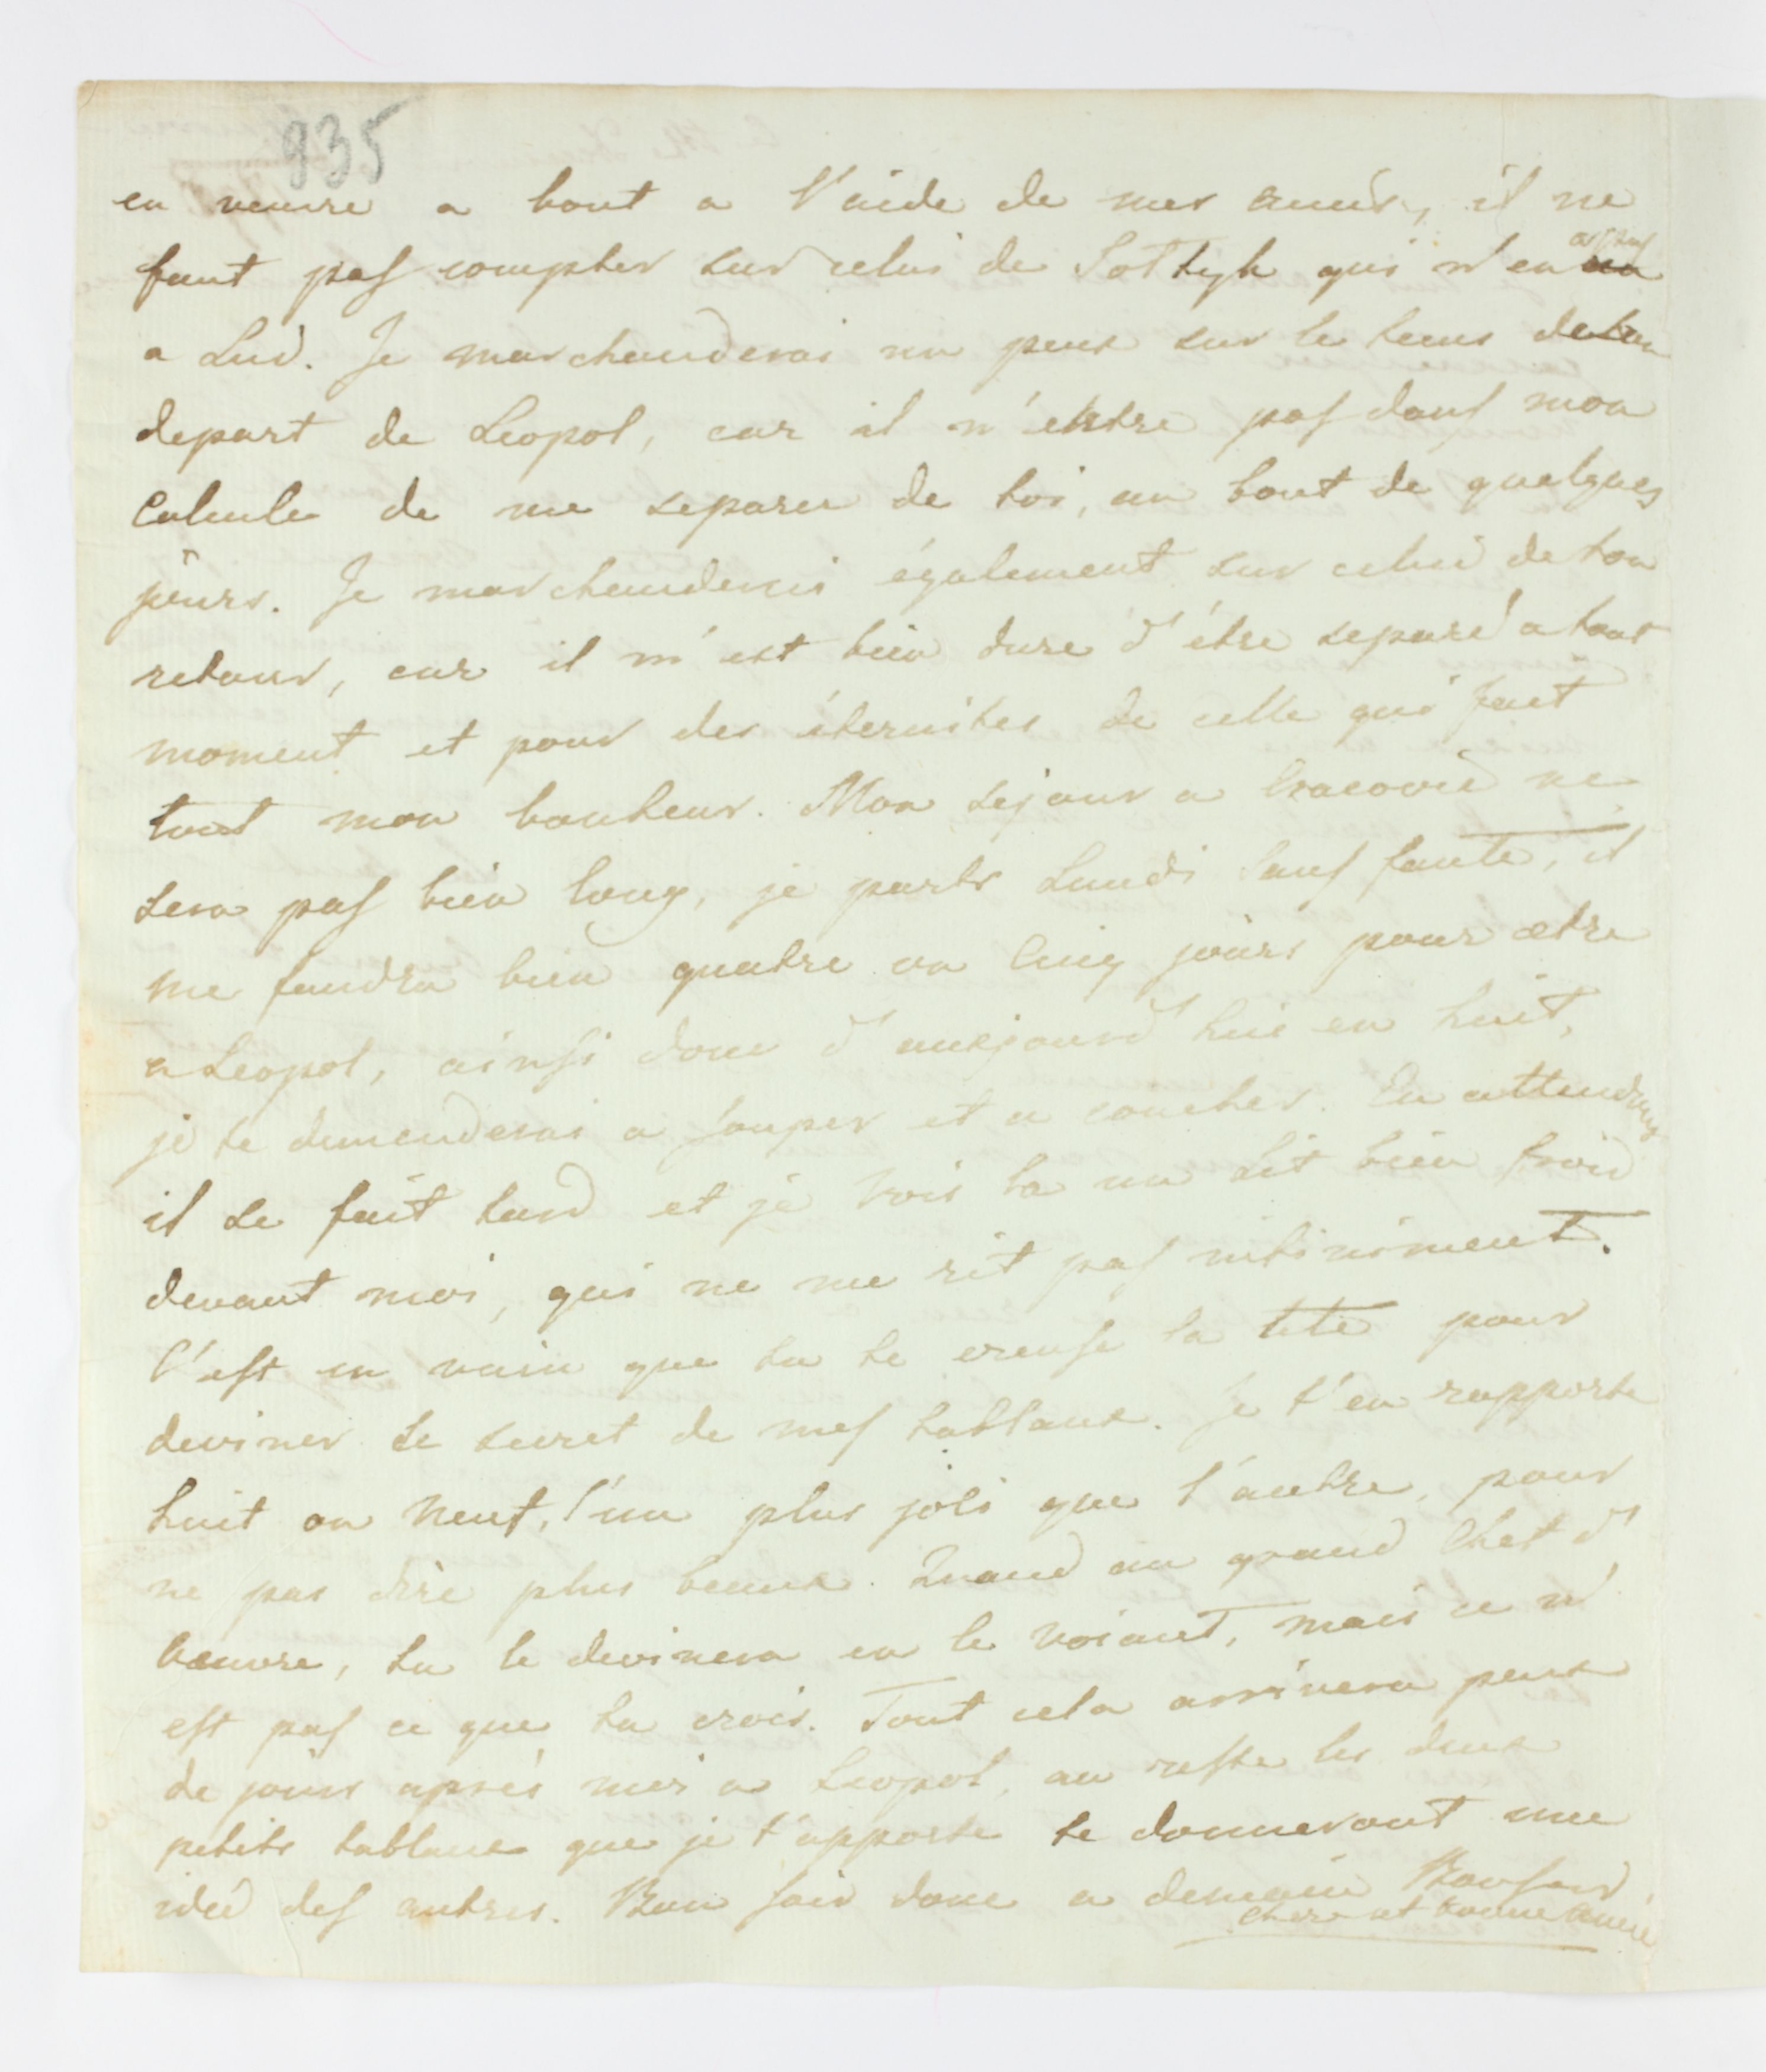 935
en venire a bout a l'aide de mes amis, il ne
faut pas compter sur celui de Soltyk qui n'en
a Lui. Je marchanderai un peux sur le tems
depart de Leopol, car il n'entre pas dans mon
Calcule de me separer de toi, au bout de quelques
jours. Je marchanderai également sur celui de ton
retour, car il m'est bien dure d'étre separé a tout
moment et pour des éternites de celle qui fait
tout mon bonheur. Mon sejour a Cracovie ne
sera pas bien long, je parts Lundi sans faute, il
me faudra bien quatre ou Cinq jours pour etre
a Leopol, ainsi donc d'aujourd'hui en huit,
je te demanderai a souper et a coucher. En attendant
il se fait tard et je vois la un Lit bien froid
devant moi, qui ne me rit pas infiniment.
C'est en vain que tu te creuse la tete pour
deviner le secret de mes tablaux. Je t'en rapporte
huit ou Neuf, l'un plus joli que l'autre, pour
ne pas dire plus beaux. Quand au grand Chef d'
oeuvre, tu le devinera en le voiant, mais ce n'
est pas ce que tu crois. Tout cela arrivera peux
de jours après moi a Leopol, au reste les deux
petits tablaux que je t'apporte te donneront une
idée des autres. Bon soir donc a demain Bonsoir
chere et bonne amie